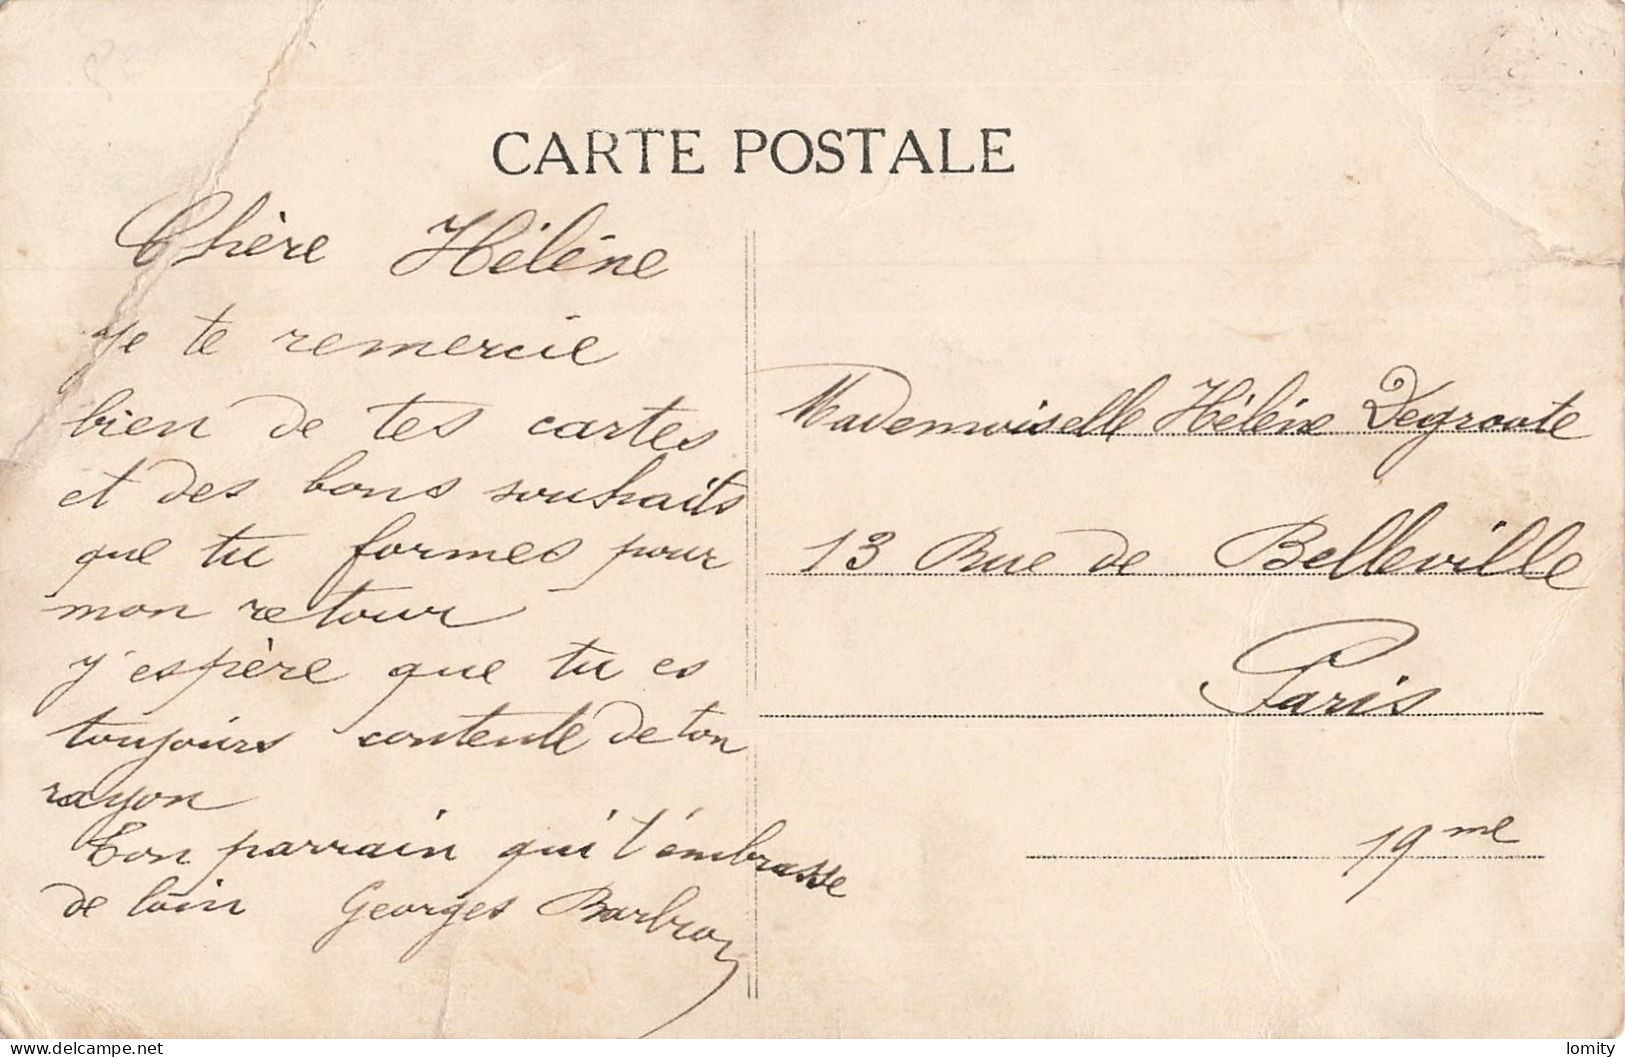 CARTE POSTALE
Chère Hélène
je te remercie
bien de tes cartes
et des bons souhaits
que tu formes pour
mon retour
j'espère que tu es
toujours contente de ton
rayon
Ton parrain qui t'embrasse
de loin Georges
Mademoiselle Hélène Degroote
13 Rue de Belleville
Paris
19me
lomity